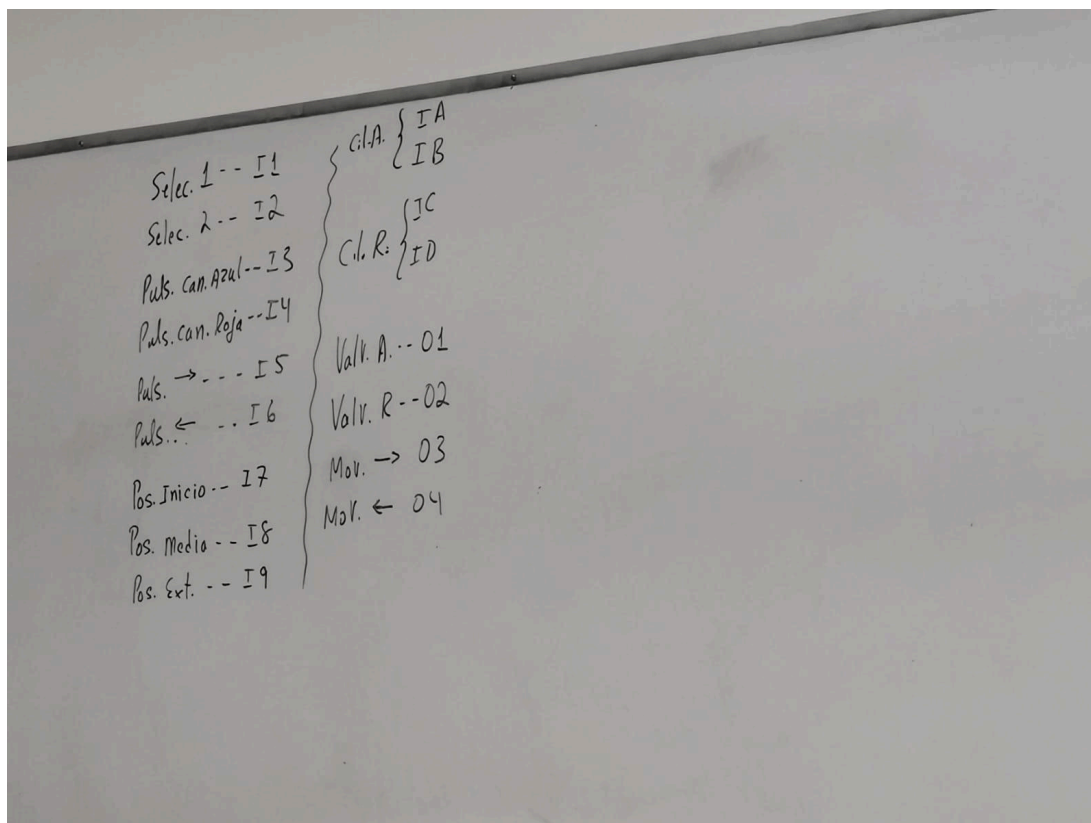 Selec. 1 -- I1
Selec. 2 -- I2
Puls. Can. Azul -- I3
Puls. Can. Roja -- I4
Puls. → --- I5
Puls. ← -- I6
Pos. Inicio -- I7
Pos. Media -- I8
Pos. Ext. -- I9
Cil. A. { IA
IB
Cil. R. { IC
ID
Valv. A. -- O1
Valv. R -- O2
Mov. → O3
Mov. ← O4